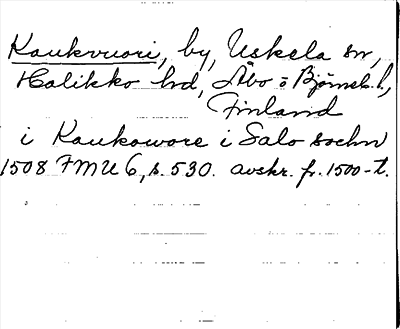 Kaukvuori, by, Uskela sn,
Halikko hd, Åbo o Björneb. l.,
Finland
i Kaukowore i Salo sochn
1508 FMU 6, s. 530. avskr. fr. 1500-t.